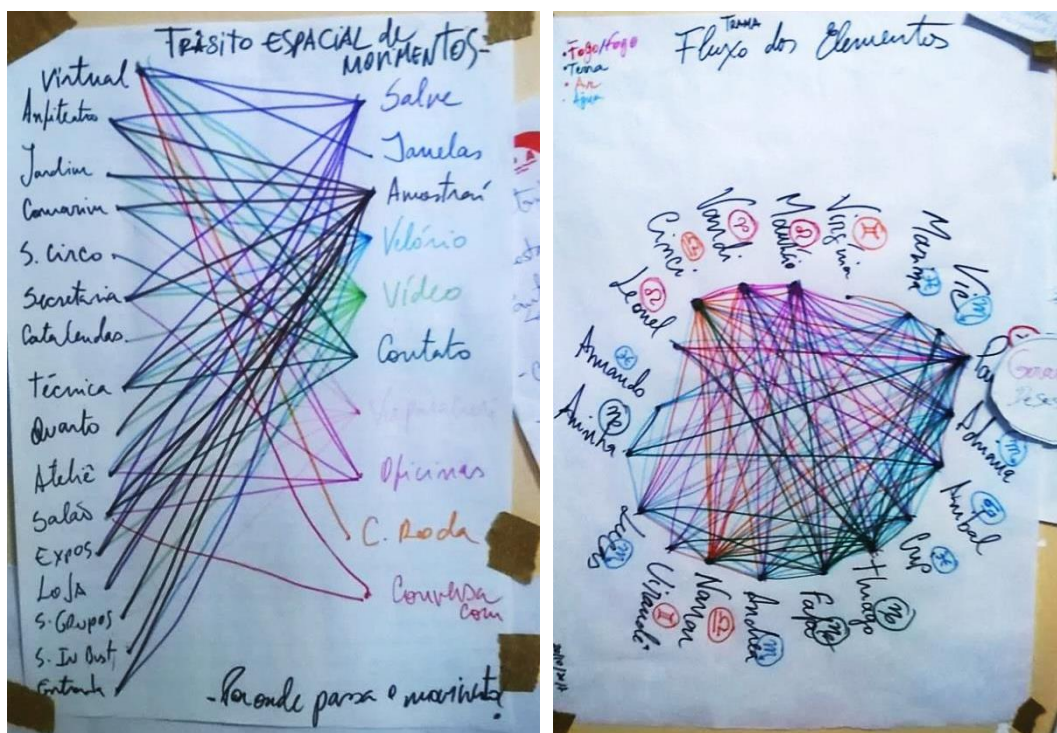 TRÂSITO ESPACIAL de
MOVIMENTOS-
Virtual
Anfiteatro
Jardim
Camarim
S. Circo
Secretaria
Cata lendas.
Técnica
Quarto
Ateliê
Salão
Expos
Loja
S. GRUPOS
Entrada
Salve
Janelas
Amostraí
Velório
Vídeo
Contato
Oficinas
C. Roda
Conversa
com
- Por onde passa o movimento?
TRAMA
Fluxo dos Elementos
• Fogo/Fogo
• Terra
• Ar
• Água
Leonel
Cinci
Vandi
Maurício
Virgínia
Marina
Vic
Adriana
Anibal
Cup
Thiago
Andrea
Nanan
Armando
Aninha